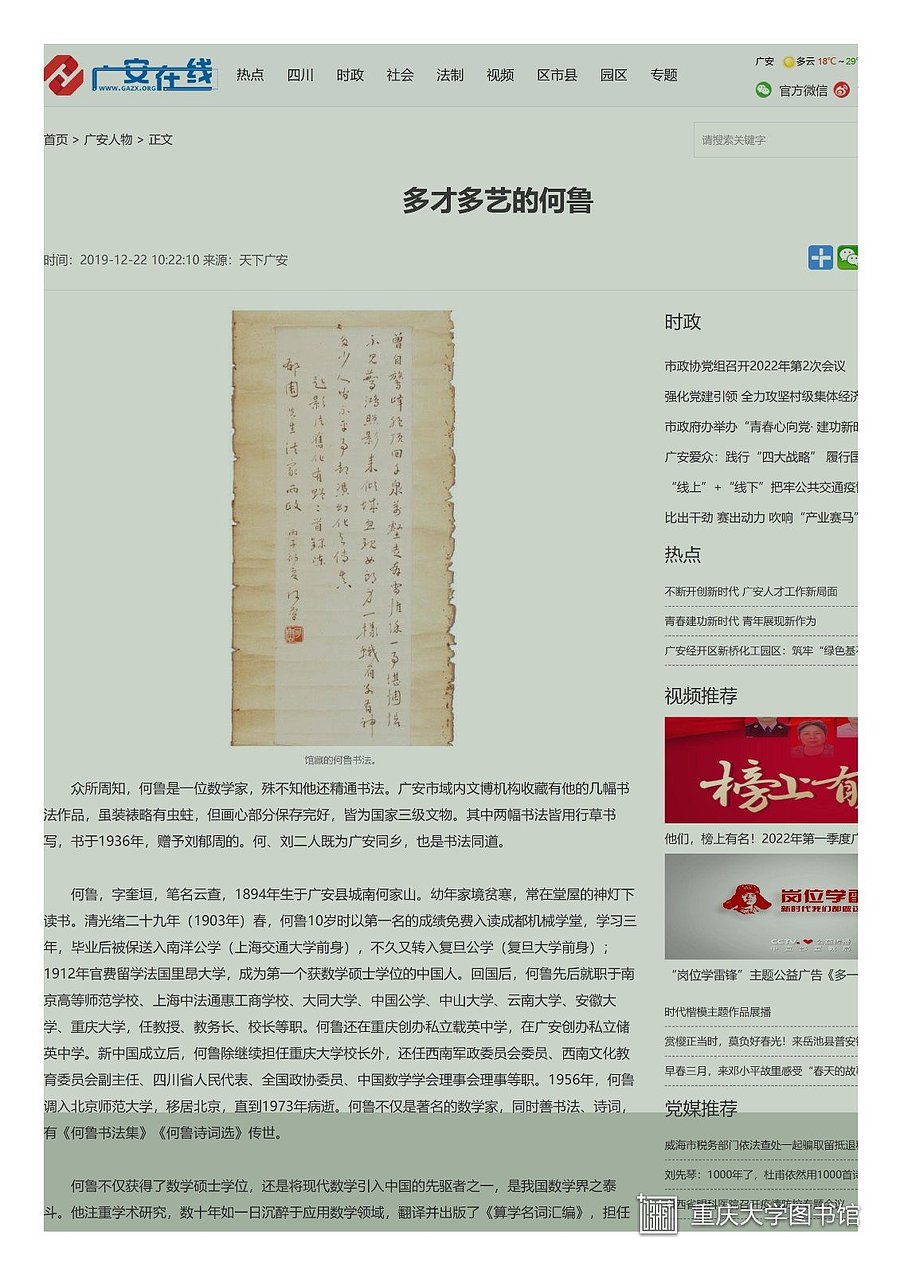 广安在线
WWW.GAZX.ORG
热点 四川 时政 社会 法制 视频 区市县 园区 专题
广安 多云 18℃～29
官方微信
首页 > 广安人物 > 正文
请搜索关键字
多才多艺的何鲁
时间：2019-12-22 10:22:10 来源：天下广安
馆藏的何鲁书法。
众所周知，何鲁是一位数学家，殊不知他还精通书法。广安市域内文博机构收藏有他的几幅书
法作品，虽装裱略有虫蛀，但画心部分保存完好，皆为国家三级文物。其中两幅书法皆用行草书
写，书于1936年，赠予刘郁周的。何、刘二人既为广安同乡，也是书法同道。
何鲁，字奎垣，笔名云查，1894年生于广安县城南何家山。幼年家境贫寒，常在堂屋的神灯下
读书。清光绪二十九年（1903年）春，何鲁10岁时以第一名的成绩免费入读成都机械学堂，学习三
年，毕业后被保送入南洋公学（上海交通大学前身），不久又转入复旦公学（复旦大学前身）；
1912年官费留学法国里昂大学，成为第一个获数学硕士学位的中国人。回国后，何鲁先后就职于南
京高等师范学校、上海中法通惠工商学校、大同大学、中国公学、中山大学、云南大学、安徽大
学、重庆大学，任教授、教务长、校长等职。何鲁还在重庆创办私立载英中学，在广安创办私立储
英中学。新中国成立后，何鲁除继续担任重庆大学校长外，还任西南军政委员会委员、西南文化教
育委员会副主任、四川省人民代表、全国政协委员、中国数学学会理事会理事等职。1956年，何鲁
调入北京师范大学，移居北京，直到1973年病逝。何鲁不仅是著名的数学家，同时善书法、诗词，
有《何鲁书法集》《何鲁诗词选》传世。
何鲁不仅获得了数学硕士学位，还是将现代数学引入中国的先驱者之一，是我国数学界之泰
斗。他注重学术研究，数十年如一日沉醉于应用数学领域，翻译并出版了《算学名词汇编》，担任
时政
市政协党组召开2022年第2次会议
强化党建引领 全力攻坚村级集体经济
市政府办举办“青春心向党· 建功新时
广安爱众：践行“四大战略” 履行国
“线上”+“线下”把牢公共交通疫情
比出干劲 赛出动力 吹响“产业赛马”
热点
不断开创新时代 广安人才工作新局面
青春建功新时代 青年展现新作为
广安经开区新桥化工园区：筑牢“绿色基
视频推荐
榜上有
他们，榜上有名！2022年第一季度广
岗位学雷
新时代我们都做
CCTV
“岗位学雷锋”主题公益广告《多一
时代楷模主题作品展播
赏樱正当时，莫负好春光！来岳池县普安
早春三月，来邓小平故里感受“春天的故
党媒推荐
威海市税务部门依法查处一起骗取留抵退
刘先琴：1000年了，杜甫依然用1000首诗
重庆大学图书馆